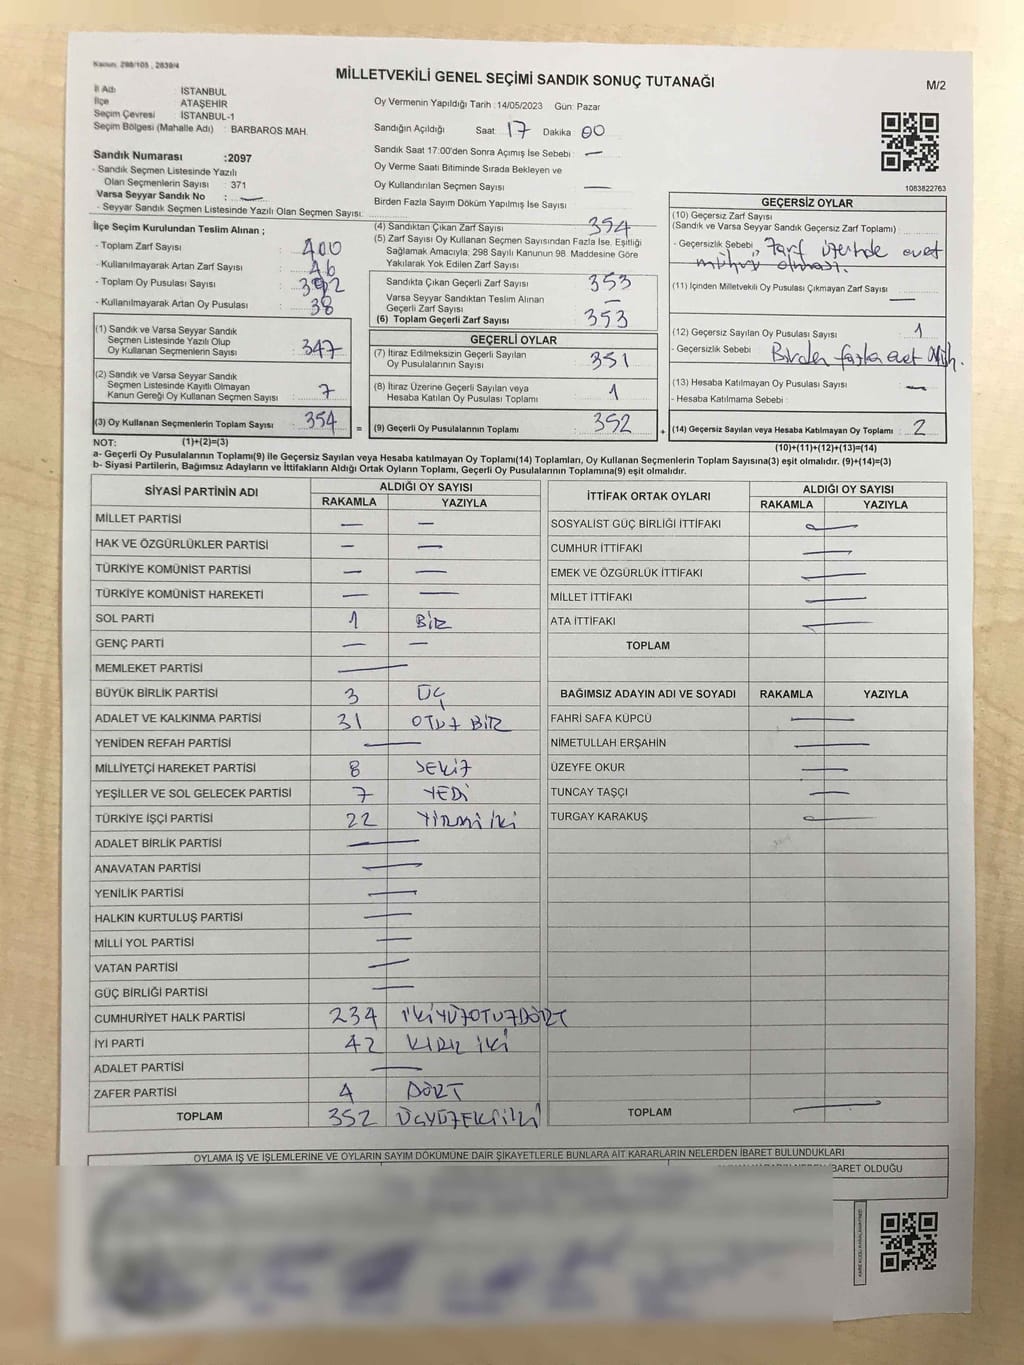 Kanun: 298/105 , 2839/4
MİLLETVEKİLİ GENEL SEÇİMİ SANDIK SONUÇ TUTANAĞI
M/2
İl Adı İSTANBUL
İlçe ATAŞEHİR
Seçim Çevresi İSTANBUL-1
Seçim Bölgesi (Mahalle Adı) : BARBAROS MAH.
Oy Vermenin Yapıldığı Tarih :14/05/2023 Gün: Pazar
Sandığın Açıldığı Saat 17 Dakika 00
Sandık Saat 17:00'den Sonra Açımış İse Sebebi : —
Oy Verme Saati Bitiminde Sırada Bekleyen ve
Oy Kullandırılan Seçmen Sayısı —
Birden Fazla Sayım Döküm Yapılmış İse Sayısı
1083822763
Sandık Numarası :2097
- Sandık Seçmen Listesinde Yazılı
Olan Seçmenlerin Sayısı : 371
Varsa Seyyar Sandık No : —
- Seyyar Sandık Seçmen Listesinde Yazılı Olan Seçmen Sayısı:
İlçe Seçim Kurulundan Teslim Alınan ;
- Toplam Zarf Sayısı : 400
- Kullanılmayarak Artan Zarf Sayısı : 46
- Toplam Oy Pusulası Sayısı : 392
- Kullanılmayarak Artan Oy Pusulası : 38
(1) Sandık ve Varsa Seyyar Sandık
Seçmen Listesinde Yazılı Olup
Oy Kullanan Seçmenlerin Sayısı : 347
(2) Sandık ve Varsa Seyyar Sandık
Seçmen Listesinde Kayıtlı Olmayan
Kanun Gereği Oy Kullanan Seçmen Sayısı : 7
(3) Oy Kullanan Seçmenlerin Toplam Sayısı : 354 =
(4) Sandıktan Çıkan Zarf Sayısı : 354
(5) Zarf Sayısı Oy Kullanan Seçmen Sayısından Fazla İse, Eşitliği
Sağlamak Amacıyla; 298 Sayılı Kanunun 98. Maddesine Göre
Yakılarak Yok Edilen Zarf Sayısı
Sandıkta Çıkan Geçerli Zarf Sayısı : 353
Varsa Seyyar Sandıktan Teslim Alınan
Geçerli Zarf Sayısı : —
(6) Toplam Geçerli Zarf Sayısı : 353
GEÇERLİ OYLAR
(7) İtiraz Edilmeksizin Geçerli Sayılan
Oy Pusulalarının Sayısı : 351
(8) İtiraz Üzerine Geçerli Sayılan veya
Hesaba Katılan Oy Pusulası Toplamı : 1
(9) Geçerli Oy Pusulalarının Toplamı : 352 +
GEÇERSİZ OYLAR
(10) Geçersiz Zarf Sayısı
(Sandık ve Varsa Seyyar Sandık Geçersiz Zarf Toplamı) :
- Geçersizlik Sebebi : Zarf üzerinde evet
mührü olması.
(11) İçinden Milletvekili Oy Pusulası Çıkmayan Zarf Sayısı : —
(12) Geçersiz Sayılan Oy Pusulası Sayısı : 1
- Geçersizlik Sebebi : Birden fazla evet Müh.
(13) Hesaba Katılmayan Oy Pusulası Sayısı : —
- Hesaba Katılmama Sebebi :
(14) Geçersiz Sayılan veya Hesaba Katılmayan Oy Toplamı : 2
NOT: (1)+(2)=(3)
(10)+(11)+(12)+(13)=(14)
a- Geçerli Oy Pusulalarının Toplamı(9) ile Geçersiz Sayılan veya Hesaba katılmayan Oy Toplamı(14) Toplamları, Oy Kullanan Seçmenlerin Toplam Sayısına(3) eşit olmalıdır. (9)+(14)=(3)
b- Siyasi Partilerin, Bağımsız Adayların ve İttifakların Aldığı Ortak Oyların Toplamı, Geçerli Oy Pusulalarının Toplamına(9) eşit olmalıdır.
SİYASİ PARTİNİN ADI ALDIĞI OY SAYISI
RAKAMLA YAZIYLA
MİLLET PARTİSİ — —
HAK VE ÖZGÜRLÜKLER PARTİSİ — —
TÜRKİYE KOMÜNİST PARTİSİ — —
TÜRKİYE KOMÜNİST HAREKETİ — —
SOL PARTİ 1 BİR
GENÇ PARTİ — —
MEMLEKET PARTİSİ —
BÜYÜK BİRLİK PARTİSİ 3 ÜÇ
ADALET VE KALKINMA PARTİSİ 31 OTUZ BİR
YENİDEN REFAH PARTİSİ —
MİLLİYETÇİ HAREKET PARTİSİ 8 SEKİZ
YEŞİLLER VE SOL GELECEK PARTİSİ 7 YEDİ
TÜRKİYE İŞÇİ PARTİSİ 22 YİRMİ İKİ
ADALET BİRLİK PARTİSİ —
ANAVATAN PARTİSİ —
YENİLİK PARTİSİ —
HALKIN KURTULUŞ PARTİSİ —
MİLLİ YOL PARTİSİ —
VATAN PARTİSİ —
GÜÇ BİRLİĞİ PARTİSİ —
CUMHURİYET HALK PARTİSİ 234 İKİYÜZOTUZDÖRT
İYİ PARTİ 42 KIRK İKİ
ADALET PARTİSİ —
ZAFER PARTİSİ 4 DÖRT
TOPLAM 352 ÜÇYÜZELLİİKİ
İTTİFAK ORTAK OYLARI ALDIĞI OY SAYISI
RAKAMLA YAZIYLA
SOSYALİST GÜÇ BİRLİĞİ İTTİFAKI —
CUMHUR İTTİFAKI —
EMEK VE ÖZGÜRLÜK İTTİFAKI —
MİLLET İTTİFAKI —
ATA İTTİFAKI —
TOPLAM
BAĞIMSIZ ADAYIN ADI VE SOYADI RAKAMLA YAZIYLA
FAHRİ SAFA KÜPCÜ —
NİMETULLAH ERŞAHİN —
ÜZEYFE OKUR —
TUNCAY TAŞÇI —
TURGAY KARAKUŞ —
TOPLAM —
OYLAMA İŞ VE İŞLEMLERİNE VE OYLARIN SAYIM DÖKÜMÜNE DAİR ŞİKAYETLERLE BUNLARA AİT KARARLARIN NELERDEN İBARET BULUNDUKLARI
İBARET OLDUĞU